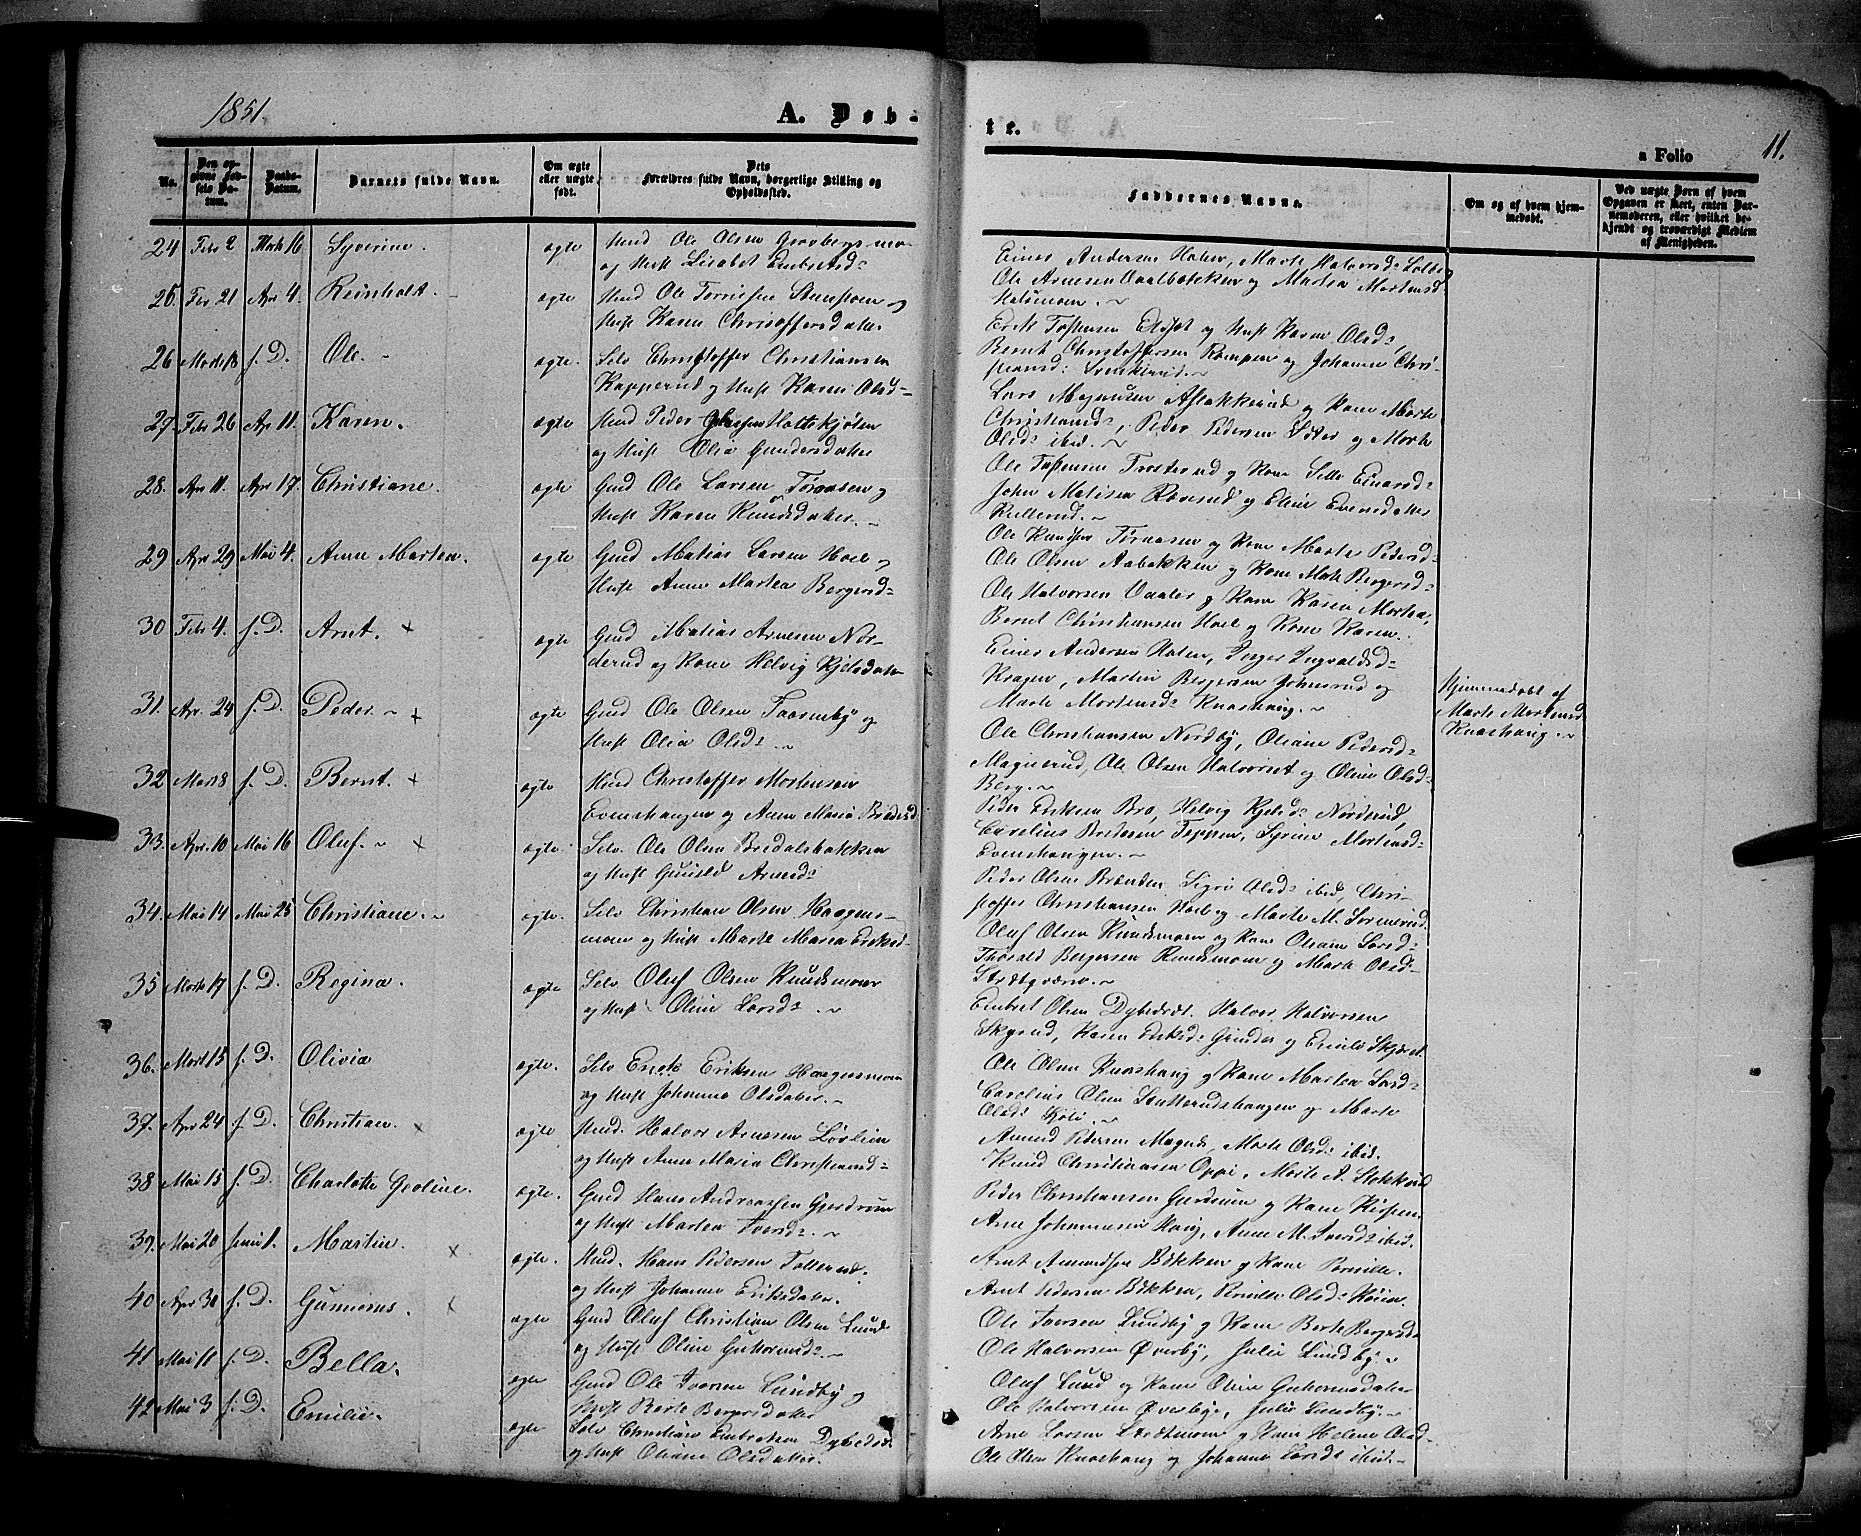 1851.
A. Døb-
te.
a Folio 11.
No.
Den op-
givne Fød-
sels Da-
tum.
Daabs-
Datum.
Barnets fulde Navn.
Om ægte
eller uægte
født.
Dets
Forældres fulde Navn, borgerlige Stilling og
Opholdssted.
Faddernes Navne.
Om og af hvem hjem-
medøbt.
Ved uægte Børn af hvem
Opgaven er skeet, enten Bar-
nemoderen, eller hvilket be-
kjendt og troværdigt Medlem
af Menigheden.
24 Febr 2 Marts 16 Syverine. ægte Hmd Ole Olsen
og Hust Lisabet Embretsd:
Einer Andersen Halen, Marte Halvorsd:
Ole Arnesen Aalbækken og Martea Mortensd
25. Febr 21 Apr 4. Reinholt. ægte Hmd Ole og
Hust Karen Christoffersdatter.
Erik og Hust Karen Olsd:
26 Marts 18 f. D. Ole. ægte. Selv Christoffer Christiansen
Kapperud og Hust Karen Olsd=
Bernt Christoffersen Rompen og Johanne Chri-
stiansd:
27. Febr 26 Apr 11. Karen. ægte Hmd Peder
og Hust Olia Gundersdatter
Lars Magnusen Aslakkerud og Kone Marte
Christiansd:, Peder Pedersen og Marte
Olsd: ibid.
28. Apr 11. Apr 17. Christiane. ægte Gmd Ole Larsen Tøraasen og
Hust Karen Knudsdatter.
Ole Trosterud og Kone Sille Einarsd:
John Matisen og Eline Evensdatter
29 Apr 29 Mai 4. Anne Martea. ægte Gmd Matias Larsen Hoel og
Hust Anne Martea Bergersd=
Ole Knudsen Tøraasen og Kone Marte Pedersd=
Ole Olsen Aabakken og Kone Marte Bergersd=
30 Febr 4. f. D. Arnt. x ægte Gmd Matias Arnesen Nor-
derud og Kone Helvig Kjelsdatter
Ole Halvorsen Vaaler og Kone Karen Martea,
Bernt Christiansen Hoel og Kone Karen.
31. Apr. 24 f. D. Peder. x ægte Gmd Ole Olsen og
Hust Olia Olsd:
Einer Andersen Halen, Inger Ingvaldsd=
Kragen, Martin Bergersen og
Marte Mortensd: Knashaug.
Hjemmedøbt af
Marte Mortensd
Knashaug.
32 Marts 8 f. D. Bernt. x ægte Hmd Christoffer Mortensen
Evenshaugen og Anne Maria
Ole Christiansen Nordby, Oliane Pedersd=
Magnerud, Ole Olsen Halvorset og Oline Olsd:
Berg.
33. Apr. 10 Mai 16 Oluf. x ægte. Selv Ole Olsen
og Hust Gunild Arnesd:
Peder Eriksen Bra, Helvig Kjelsd: Norderud,
Carelius Bredesen Teppen, Syrine Mortensd=
Evenshaugen.
34. Mai 14 Mai 25 Christiane. ægte. Selv Christian Olsen Haagens-
moen og Hust Marte Marea Eriksd=
Peder Olsen Brænden, Sigri Olsd: ibid, Chri-
stoffer Christiansen Hoel og Marte M.
35 Marts 17 f. D. Regina. ægte. Selv Oluf Olsen Knudsmoen
og Hust Oline Larsd:
Oluf Olsen Knudsmoen og Kone Oliane Larsd:
Thorald Bergersen Knudsmoen og Marte Olsd=
36. Marts 15 f. D. Olivia ægte. Selv Erik Eriksen Haagensmoen
og Hust Johanne Olsdatter.
Embret Olsen Halvor Halvorsen
Karen Eriksd: Grinder og
37. Apr 24 f. D. Christian. x ægte. Hmd. Halvor Arnesen
og Hust Anne Maria Christiansd=
Ole Olsen Knashaug og Kone Martea Larsd:
Carelius Olsen og Marte
Olsd:
38 Mai 15 f. D. Charlotte Geoline. ægte. Gmd Hans Andreassen Gjerdrum
og Hust Martea Iversd:
Amund Pedersen Magnes, Marte Olsd: ibid.
Knud Christiansen Oppi, Marte A.
Peder Christiansen Gjerdrum og Kone
39. Mai 20 Juni 1. Martin. x ægte. Hmd. Hans Pedersen Tollerud.
og Hust Johanne Eriksdatter.
Arne Johannesen Haug, Anne M. Iversd: ibid.
40 Apr 30 f. D. Gunnerus. x ægte Gmd Oluf Christian Olsen Lund
og Hust Oline Guttormsd:
Arnt Amundsen Bekken og Kone Pernille.
Arnt Pedersen Bekken, Pernille Olsd:
41 Mai 11 f. D. Bella. ægte Gmd Ole Iversen Lundby og
Hust Berte Bergersdatter
Ole Iversen Lundby og Kone Berte Bergersd
Ole Halvorsen Øverby, Julie Lundby.
42 Mai 3 f. D. Emilie. ægte Selv Christian Embretsen
og Hust Oliane Olsdatter.
Oluf Lund og Kone Oline Guttormsdatter
Ole Halvorsen Øverbye, Julie Lundby.
Arne Larsen og Kone Helene Olsd=
Ole Olsen Knashaug og Johanne Larsd: ibid.